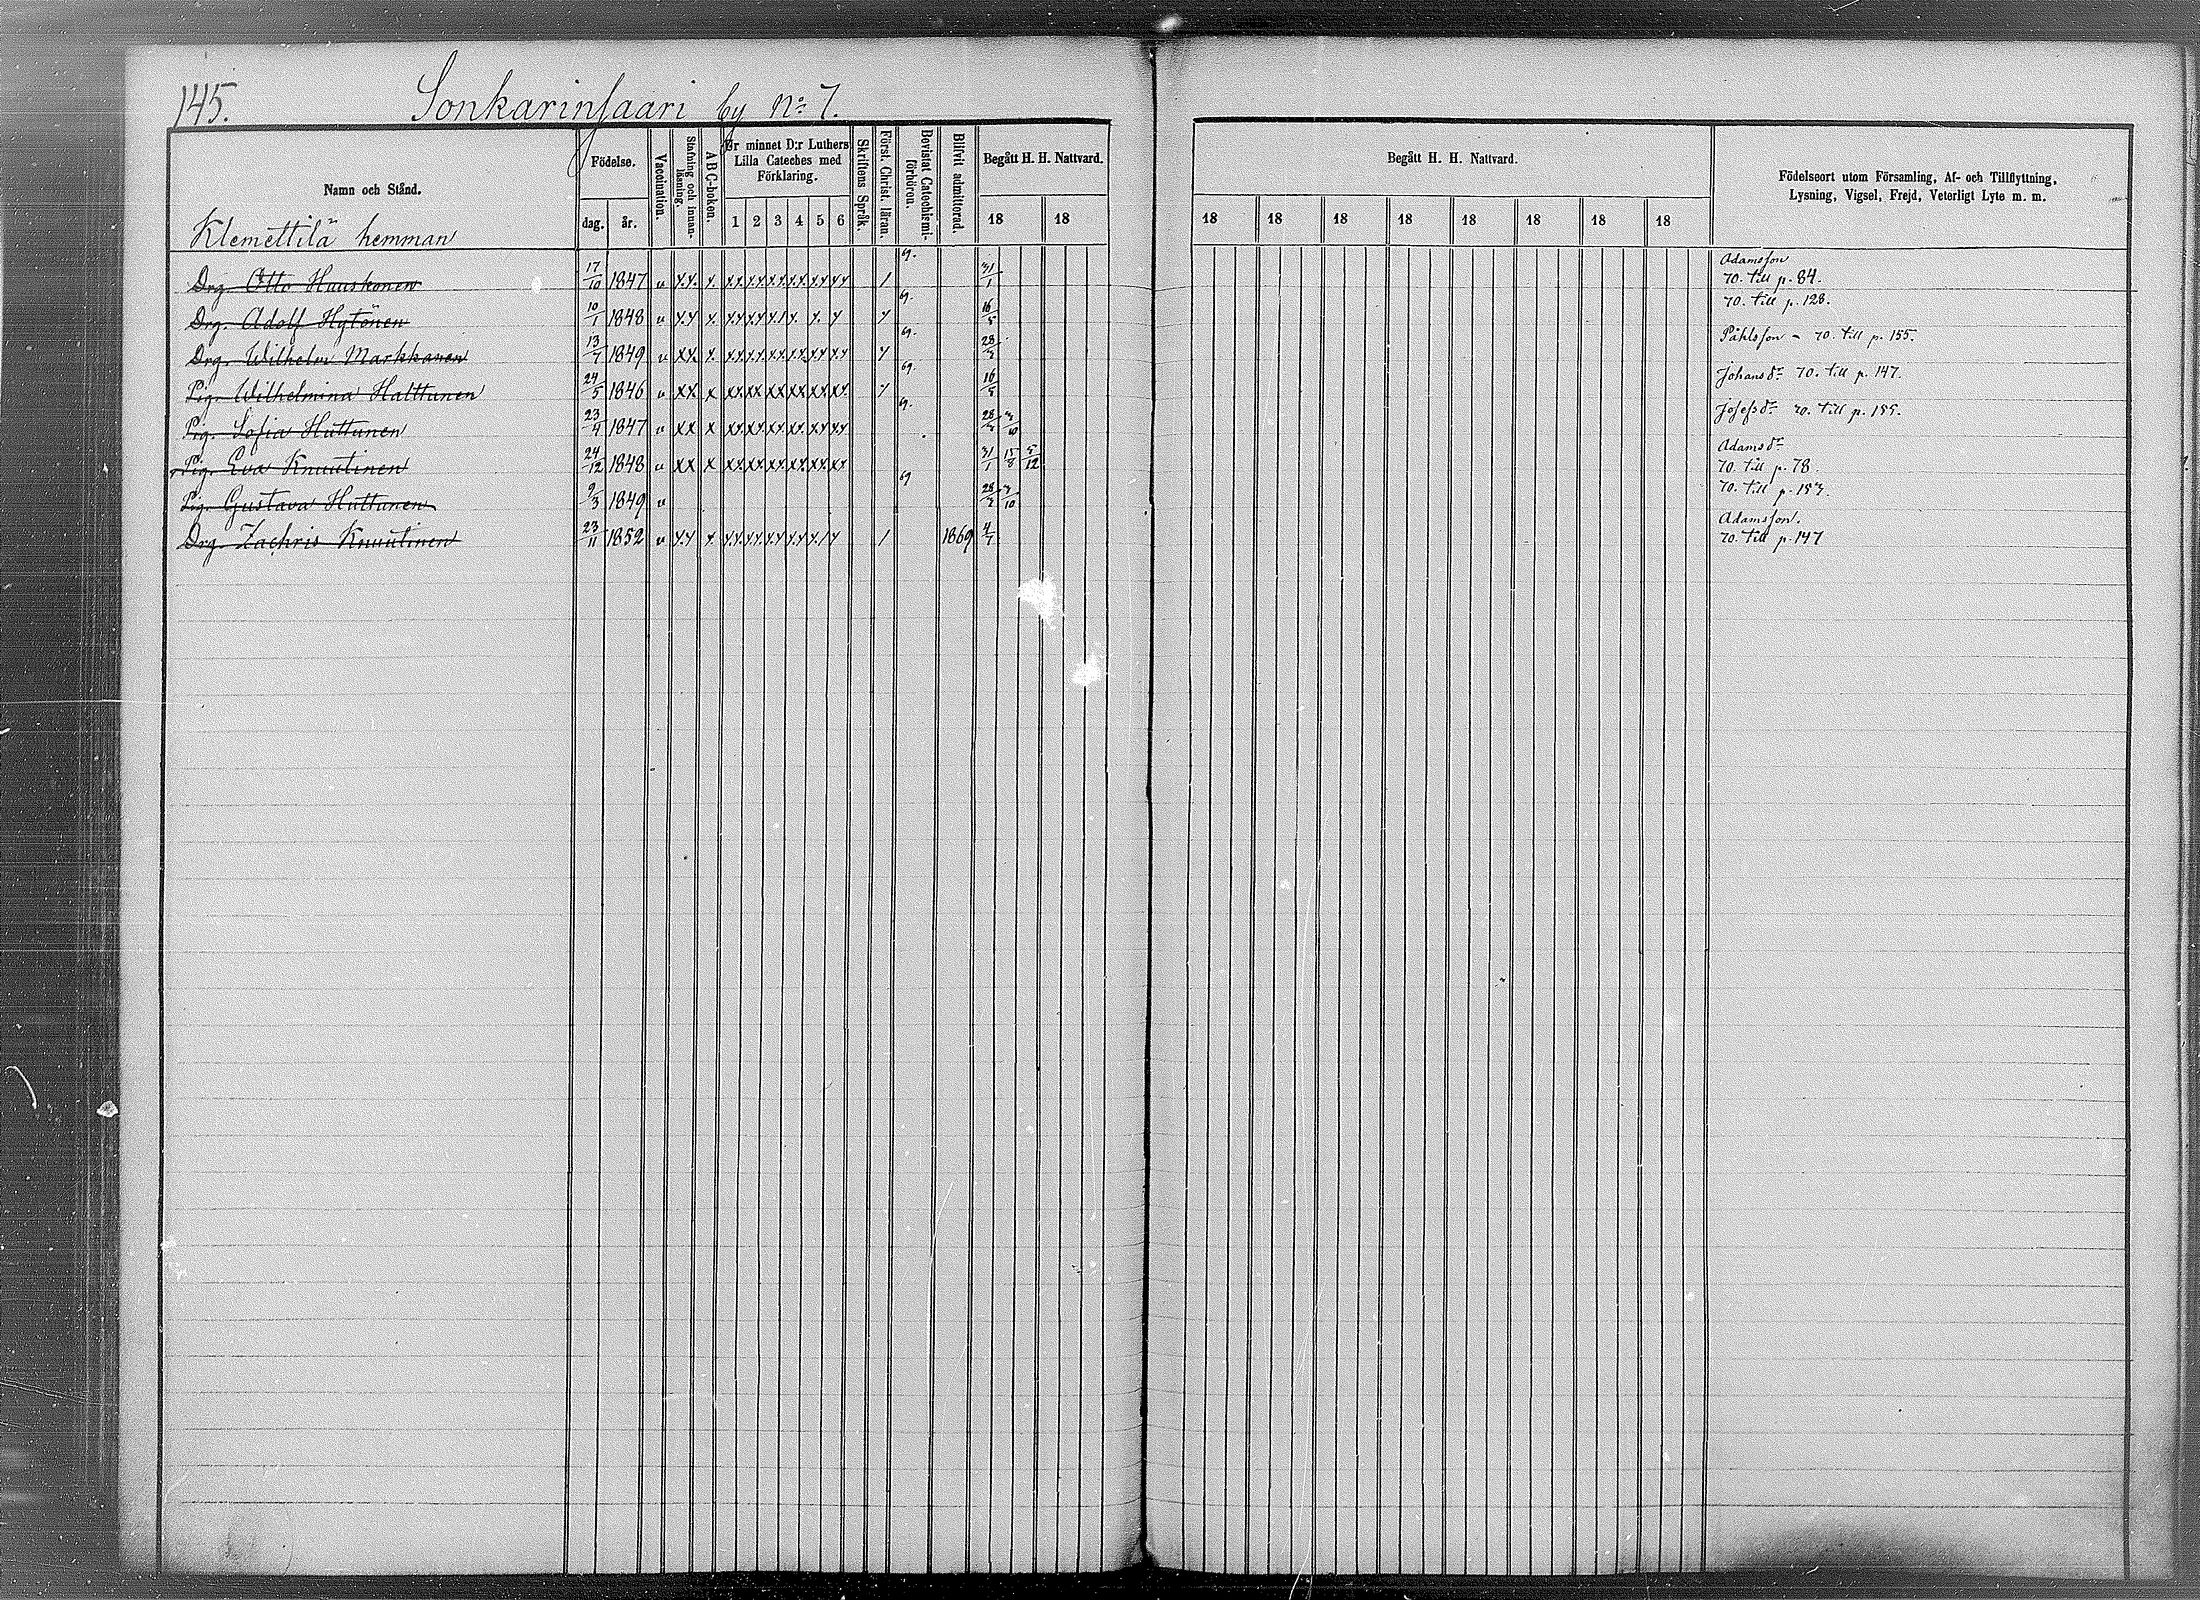 145. Sonkarinsaari by No 7.
Namn och Stånd.
Födelse.
dag. år.
Vaccination.
Stafning och innanläsning.
ABC-boken.
Ur minnet D:r Luthers Lilla Cateches med Förklaring.
1 2 3 4 5 6
Skriftens Språk.
Först. Christ. läran.
Bevistat Catechismi-förhören.
Blifvit admitterad.
Begått H. H. Nattvard.
18 18
Begått H. H. Nattvard.
18 18 18 18 18 18 18 18
Födelseort utom Församling, Af- och Tillflyttning,
Lysning, Vigsel, Frejd, Veterligt Lyte m. m.
Klemettilä hemman
Drg. Otto Hauskonen 17/10 1847 v x.x. x. xx xx xx xx xx xx / 69. 31/1 Adamsson 70. till p. 84.
Drg. Adolf Hytönen 10/1 1848 v x.x x. 69. 16/5 70. till p. 128.
Drg. Wilhelm Markkanen 13/7 1849 v xx x. xx xx xx xx xx xx 69. Påhlsson - 70. till p. 155.
Pig. Wilhelmina Halttunen 24/5 1846 v xx x xx xx xx xx xx xx 69. 16/5 Johansdr 70. till p. 147.
Pig. Sofia Huttunen 23/4 1847 v xx x xx xx xx xx xx xx 69. Josefsdr 70. till p. 155.
Pig. Eva Knuutinen 24/12 1848 v xx x xx xx xx xx xx xx 31/1 15/8 5/12 Adamsdr 70. till p. 78.
Pig. Gustava Huttunen 9/3 1849 v 69 70. till p. 153.
Drg. Zachris Knuutinen 23/11 1852 v x.x x / 1869 4/7 Adamsson. 70. till p. 147